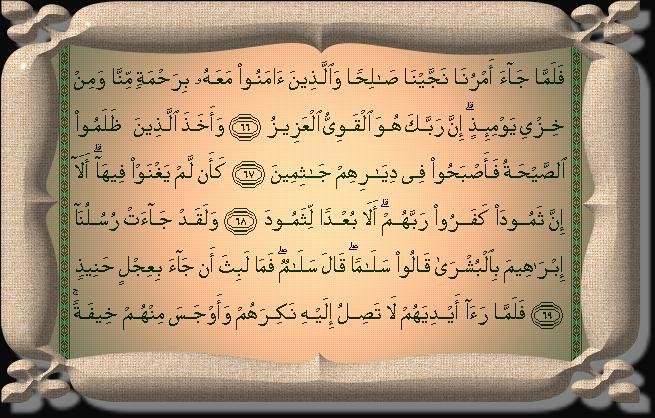 فَلَمَّا جَآءَ أَمْرُنَا نَجَّيْنَا صَـٰلِحًا وَٱلَّذِينَ ءَامَنُوا۟ مَعَهُۥ بِرَحْمَةٍ مِّنَّا وَمِنْ
خِزْىِ يَوْمِئِذٍ ۗ إِنَّ رَبَّكَ هُوَ ٱلْقَوِىُّ ٱلْعَزِيزُ ٦٦ وَأَخَذَ ٱلَّذِينَ ظَلَمُوا۟
ٱلصَّيْحَةُ فَأَصْبَحُوا۟ فِى دِيَـٰرِهِمْ جَـٰثِمِينَ ٦٧ كَأَن لَّمْ يَغْنَوْا۟ فِيهَآ ۗ أَلَآ
إِنَّ ثَمُودَا۟ كَفَرُوا۟ رَبَّهُمْ ۗ أَلَا بُعْدًا لِّثَمُودَ ٦٨ وَلَقَدْ جَآءَتْ رُسُلُنَآ
إِبْرَٰهِيمَ بِٱلْبُشْرَىٰ قَالُوا۟ سَلَـٰمًا ۖ قَالَ سَلَـٰمٌ ۖ فَمَا لَبِثَ أَن جَآءَ بِعِجْلٍ حَنِيذٍ
٦٩ فَلَمَّا رَءَآ أَيْدِيَهُمْ لَا تَصِلُ إِلَيْهِ نَكِرَهُمْ وَأَوْجَسَ مِنْهُمْ خِيفَةً ۚ